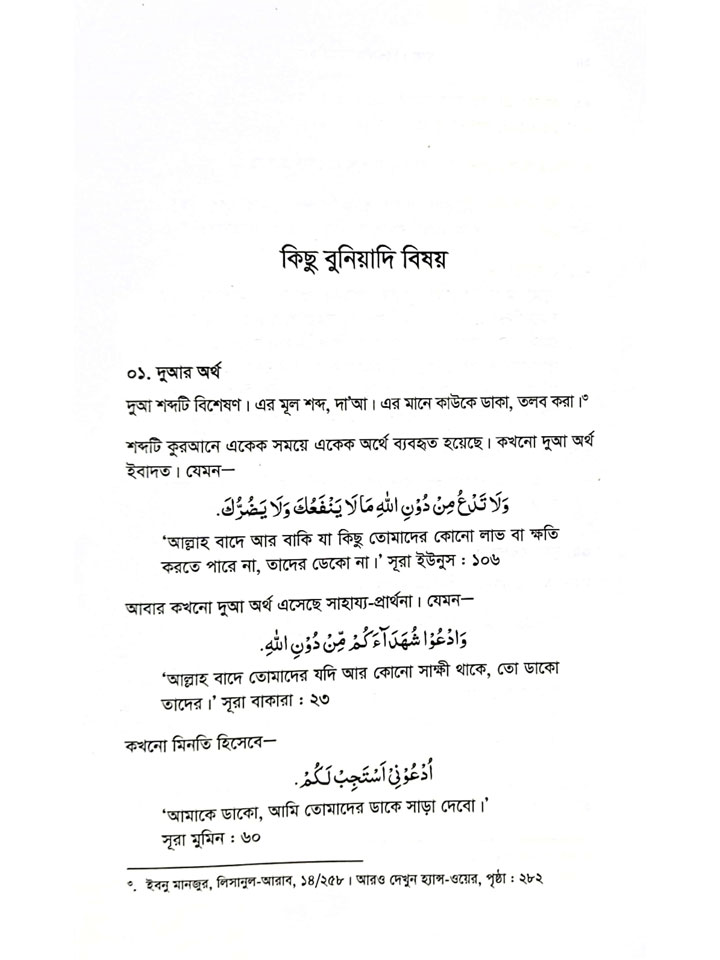 কিছু বুনিয়াদি বিষয়
০১. দুআর অর্থ
দুআ শব্দটি বিশেষণ। এর মূল শব্দ, দা'আ। এর মানে কাউকে ডাকা, তলব করা।৩
শব্দটি কুরআনে একেক সময়ে একেক অর্থে ব্যবহৃত হয়েছে। কখনো দুআ অর্থ
ইবাদত। যেমন—
وَلَا تَدْعُ مِنْ دُوْنِ اللّٰهِ مَا لَا يَنْفَعُكَ وَلَا يَضُرُّكَ.
‘আল্লাহ বাদে আর বাকি যা কিছু তোমাদের কোনো লাভ বা ক্ষতি
করতে পারে না, তাদের ডেকো না।’ সূরা ইউনুস : ১০৬
আবার কখনো দুআ অর্থ এসেছে সাহায্য-প্রার্থনা। যেমন—
وَادْعُوْا شُهَدَآءَكُمْ مِّنْ دُوْنِ اللّٰهِ.
‘আল্লাহ বাদে তোমাদের যদি আর কোনো সাক্ষী থাকে, তো ডাকো
তাদের।’ সূরা বাকারা : ২৩
কখনো মিনতি হিসেবে—
اُدْعُوْنِيْ اَسْتَجِبْ لَكُمْ.
‘আমাকে ডাকো, আমি তোমাদের ডাকে সাড়া দেবো।’
সূরা মুমিন : ৬০
৩. ইবনু মানজুর, লিসানুল-আরাব, ১৪/২৫৮। আরও দেখুন হ্যান্স-ওয়ের, পৃষ্ঠা : ২৮২